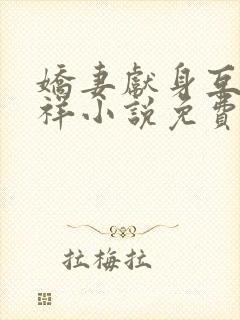 嬌妻獻身互
祥小說免費
拉梅拉